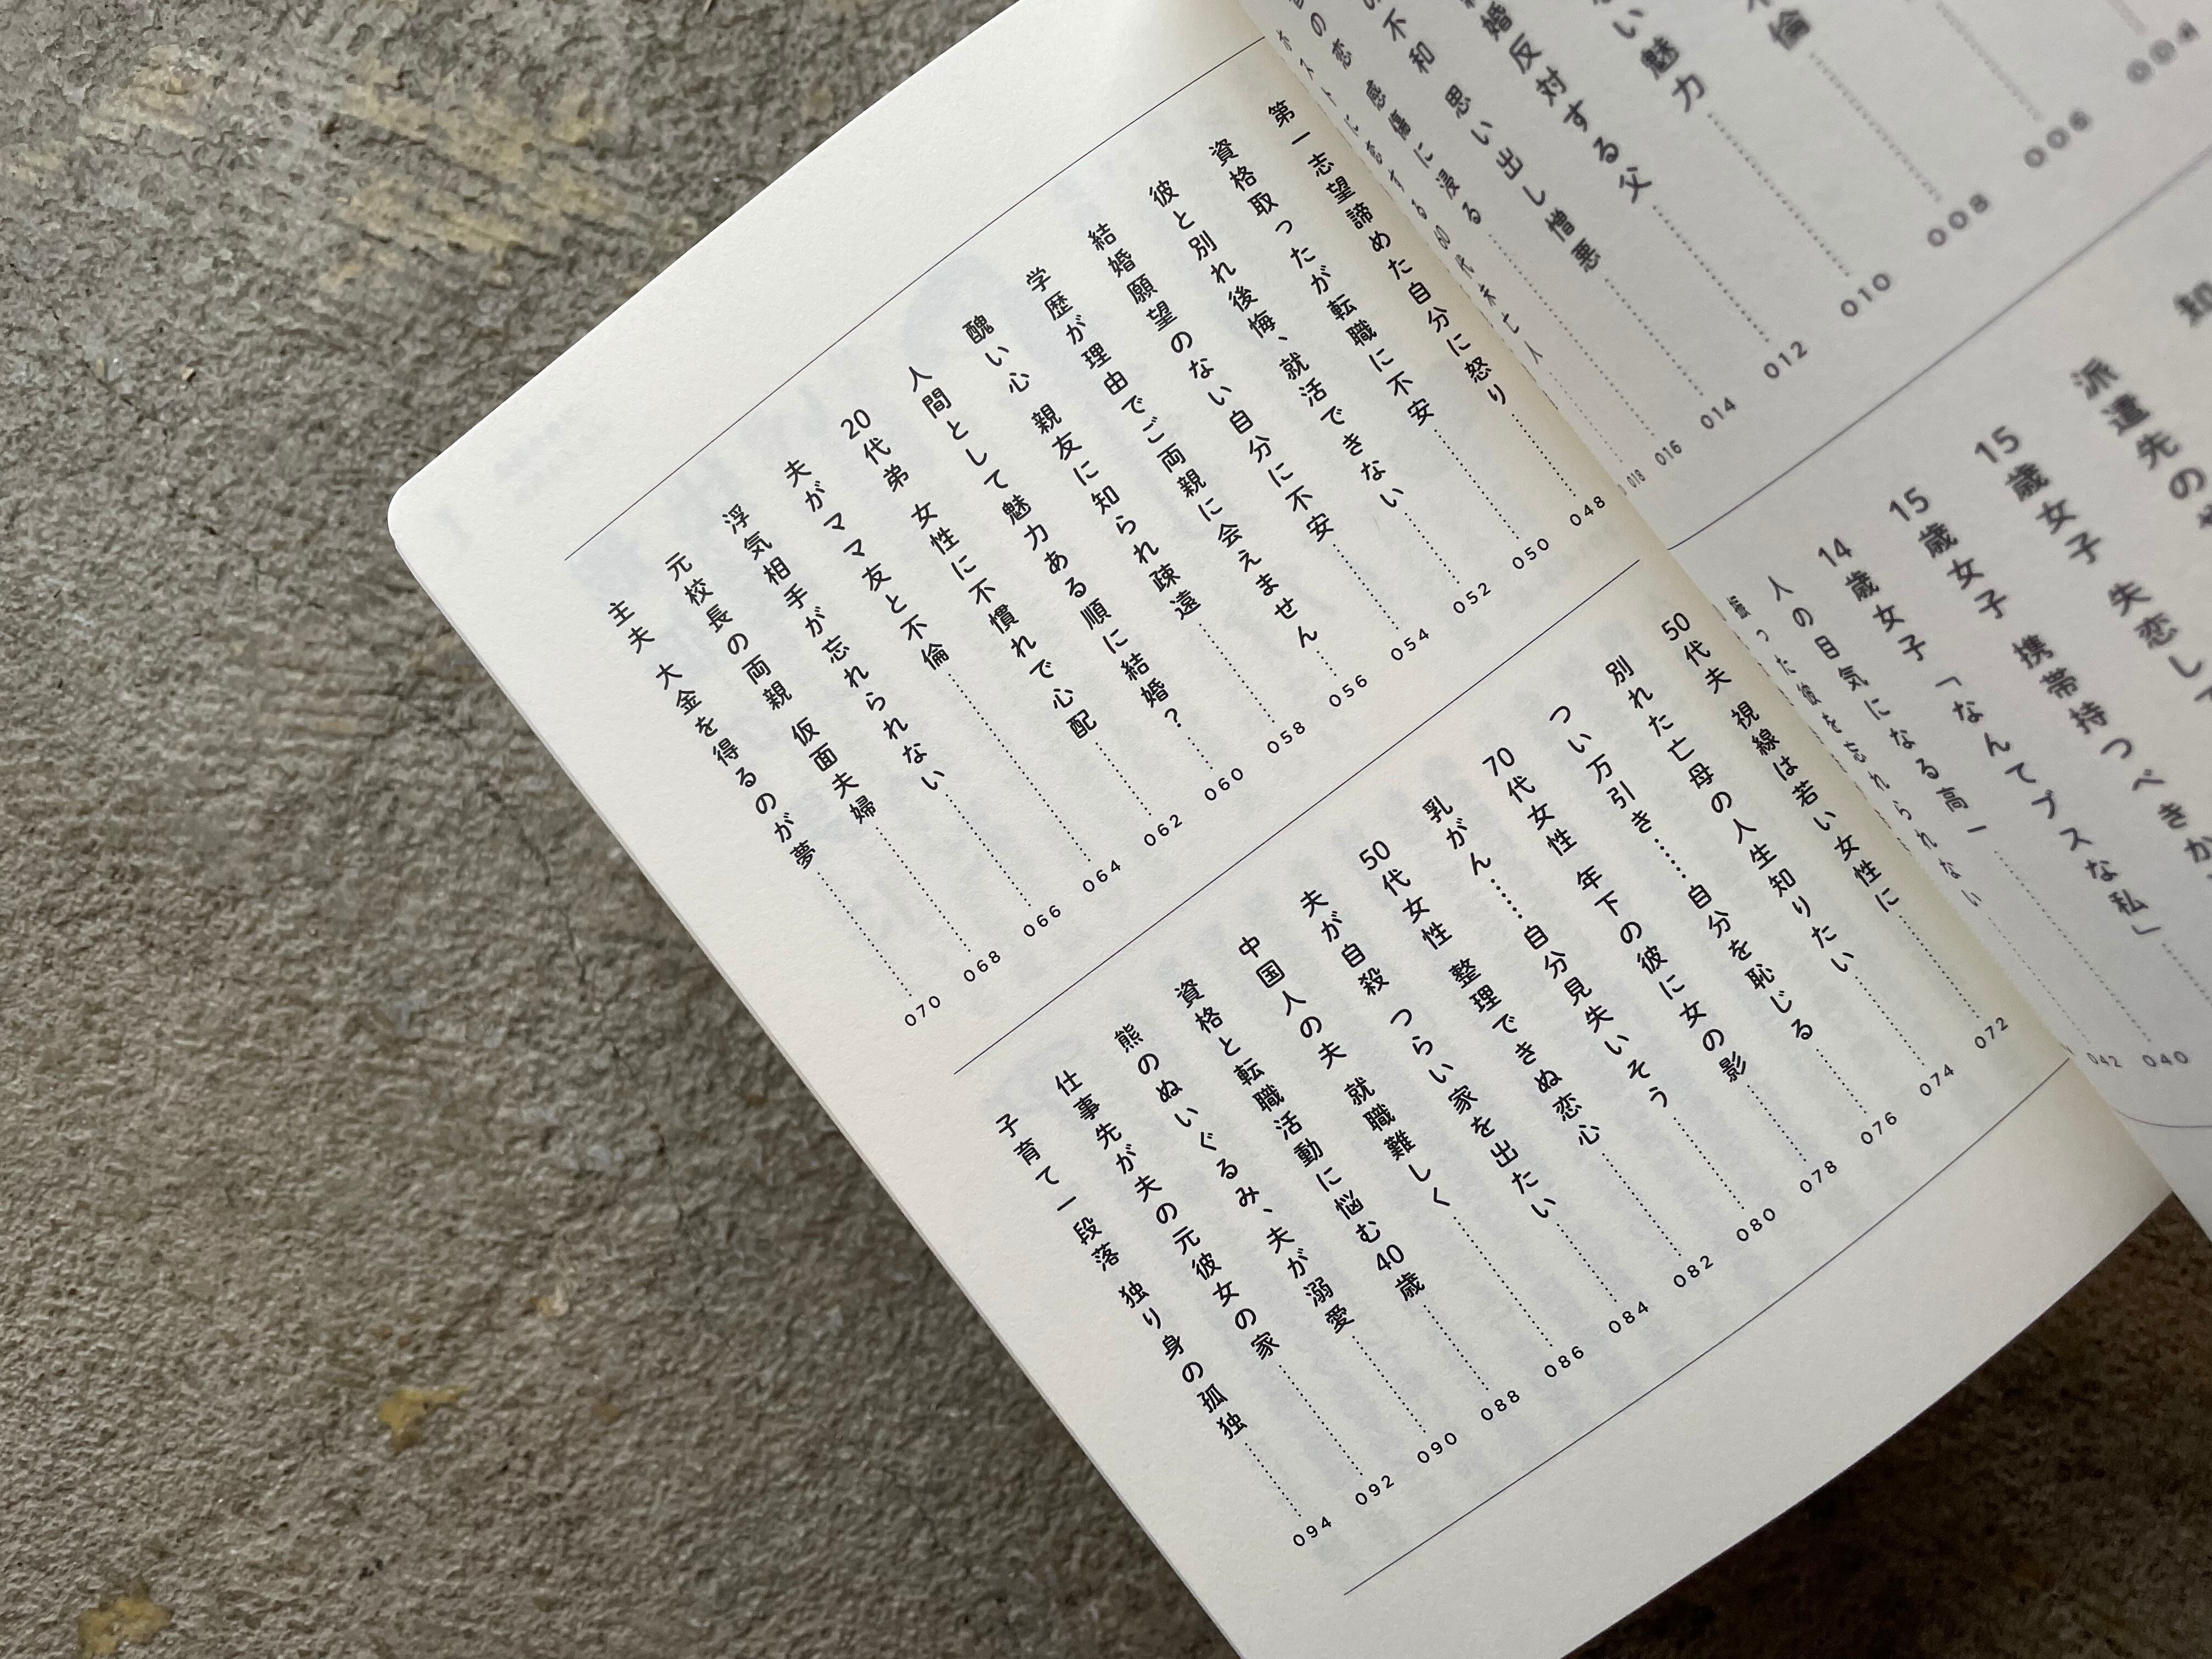 い魅力 010
婚反対する父 012
不和 思い出し憎悪 014
の恋 感傷に浸る 016
018
15歳女子 失恋し
15歳女子 携帯持つべきか
14歳女子「なんてブスな私」
人の目気になる高一 040
った彼を忘れられない 042
第一志望諦めた自分に怒り 048
資格取ったが転職に不安 050
彼と別れ後悔、就活できない 052
結婚願望のない自分に不安 054
学歴が理由でご両親に会えません 056
醜い心 親友に知られ疎遠 058
人間として魅力ある順に結婚? 060
20代弟 女性に不慣れで心配 062
夫がママ友と不倫 064
浮気相手が忘れられない 066
元校長の両親 仮面夫婦 068
主夫 大金を得るのが夢 070
50代夫 視線は若い女性に 072
別れた亡母の人生知りたい 074
つい万引き……自分を恥じる 076
70代女性 年下の彼に女の影 078
乳がん……自分見失いそう 080
50代女性 整理できぬ恋心 082
夫が自殺 つらい家を出たい 084
中国人の夫 就職難しく 086
資格と転職活動に悩む40歳 088
熊のぬいぐるみ、夫が溺愛 090
仕事先が夫の元彼女の家 092
子育て一段落 独り身の孤独 094